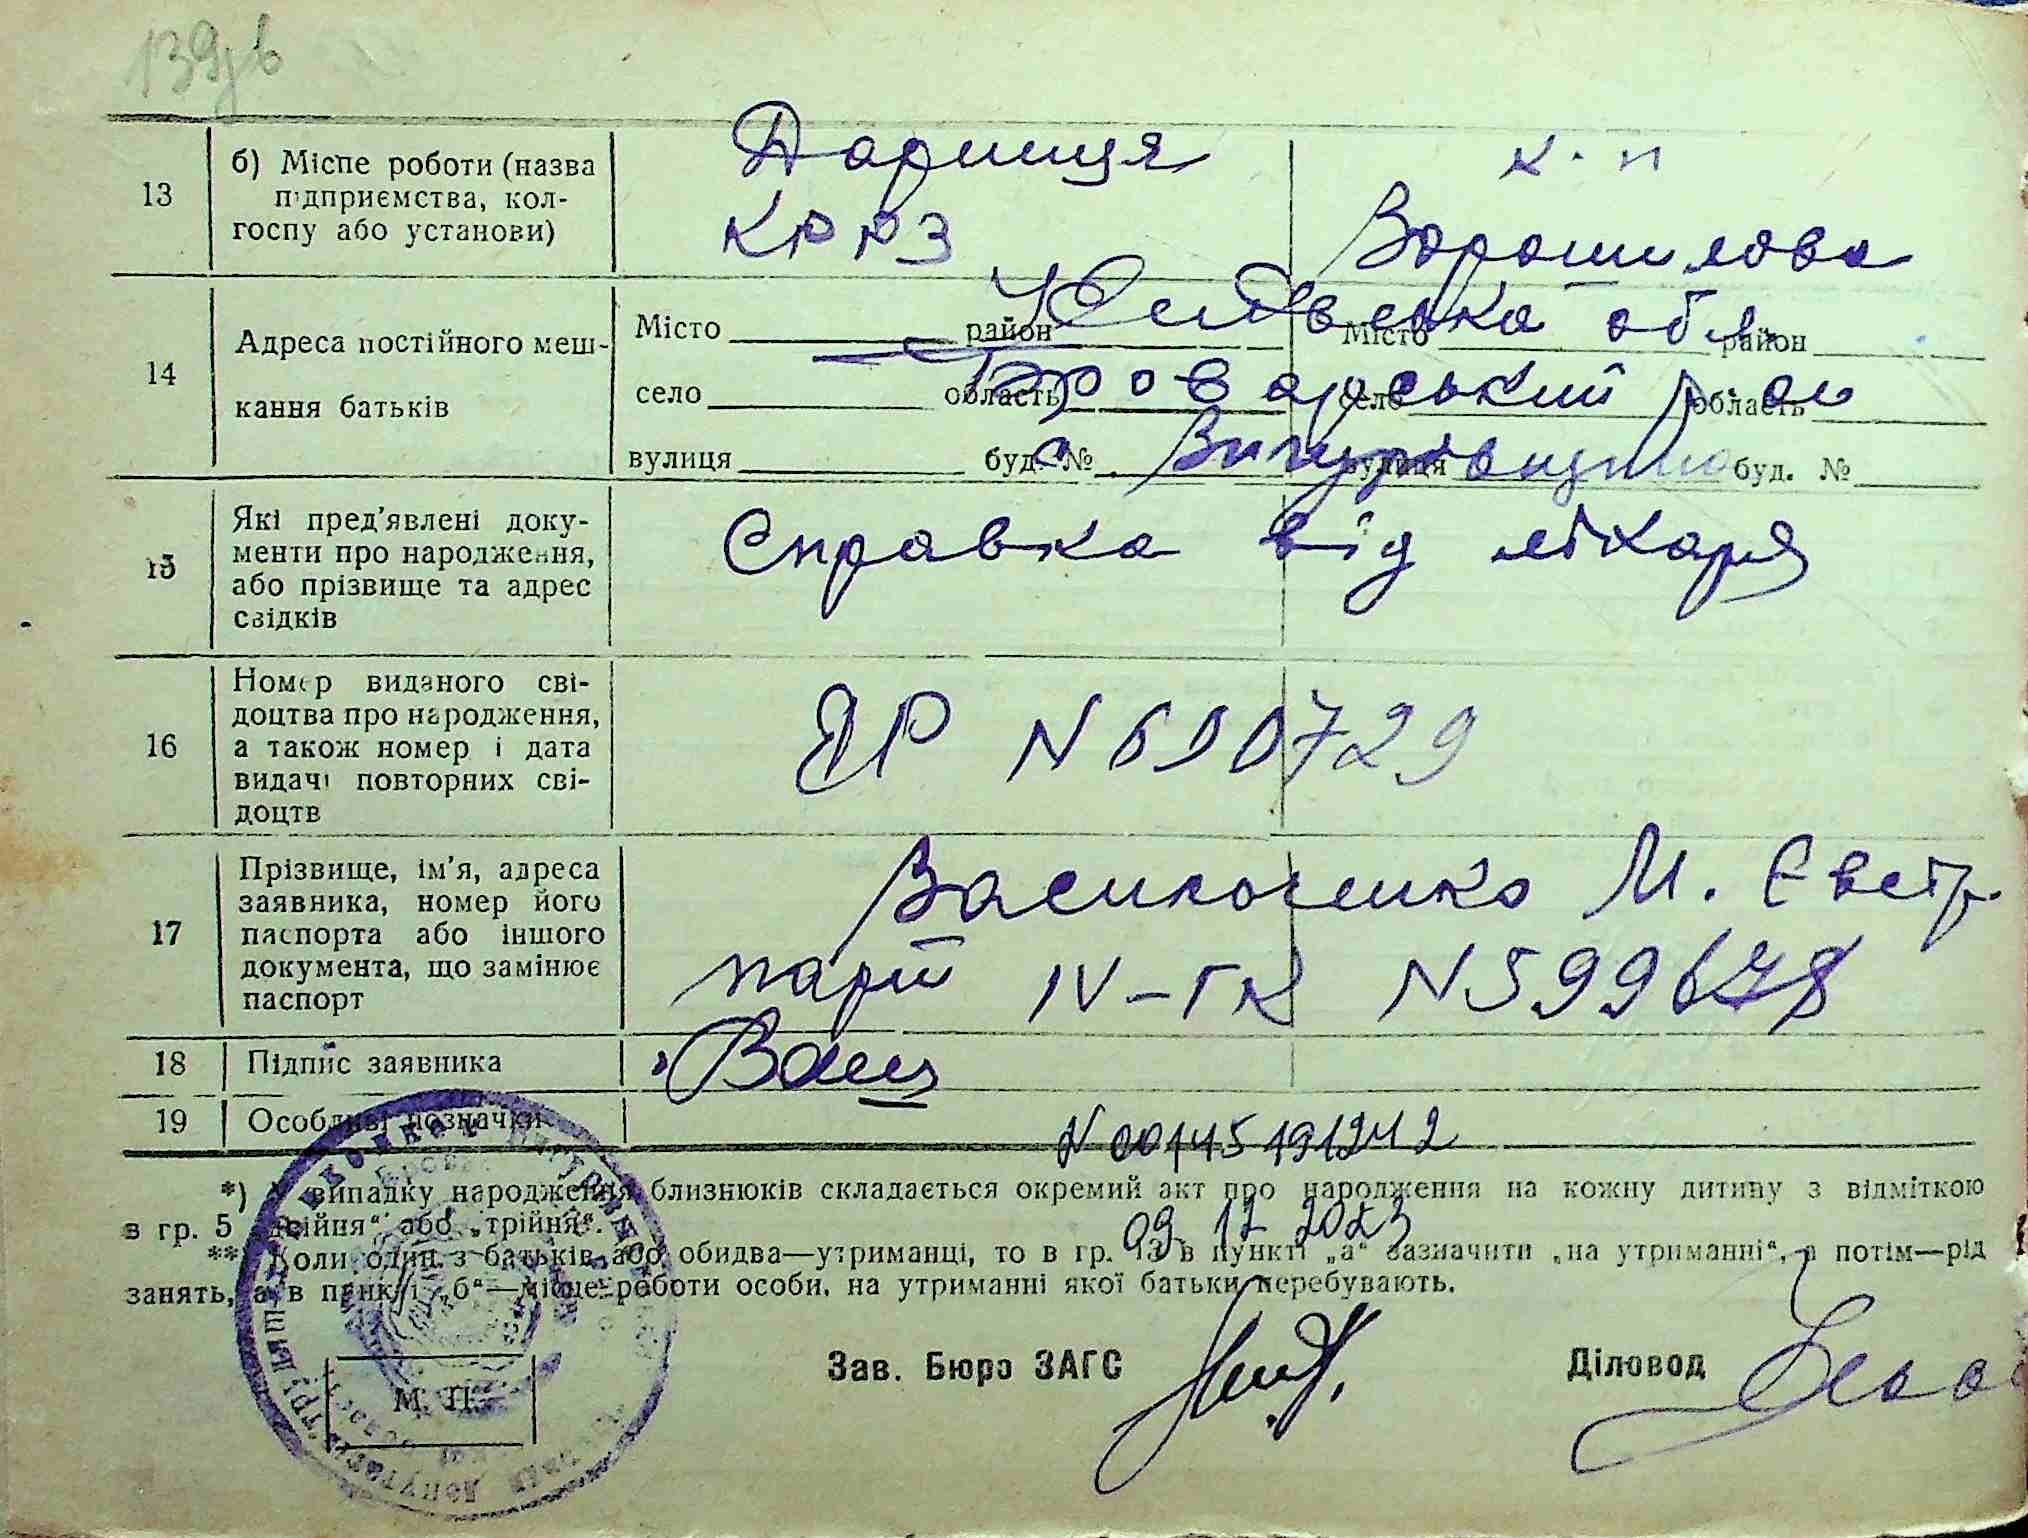 139зв
13
б) Місце роботи (назва
підприємства, кол-
госпу або установи)
Дарниця
КРРЗ
к-п
Ворошилова
14
Адреса постійного меш-
кання батьків
Місто район
село область
вулиця буд. №
Місто район
село область
вулиця буд. №
Київська обл.
Броварський р-н
с. Вигурівщина
15
Які пред'явлені доку-
менти про народження,
або прізвище та адрес
свідків
Справка від лікаря
16
Номер виданого сві-
доцтва про народження,
а також номер і дата
видачі повторних сві-
доцтв
ЯР N 690729
17
Прізвище, ім'я, адреса
заявника, номер його
паспорта або іншого
документа, що замінює
паспорт
Василенко М. Євстр.
IV-ГК N599678
18
Підпис заявника
Вас
19
Особливі позначки
N 00145191242
*) У випадку народження близнюків складається окремий акт про народження на кожну дитину з відміткою
в гр. 5 „двійня“ або „трійня“.
09 12 2023
** Коли один з батьків або обидва—утриманці, то в гр. 13 в пункті „а“ зазначити „на утриманні“, а потім—рід
занять, а в пункті „б“—місце роботи особи, на утриманні якої батьки перебувають.
Зав. Бюро ЗАГС
Діловод
М. П.